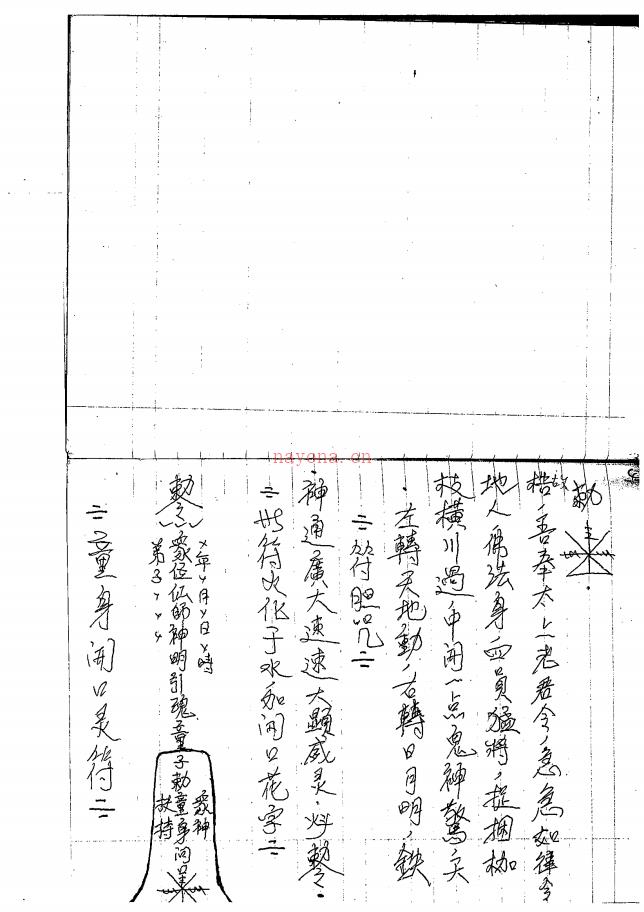 =童身開口灵符=
×年×月×日×時
敕令眾位仙師神明引魂童子勅童身開口
弟子×××
眾神
扶持
=此符火化于水和開口花字=
神通廣大速速大顯威灵.火敕令.
=符胆咒=
.左轉天地動,右轉日月明,鉄
枝橫川過中間一点鬼神驚,天
地人佛法身四員猛將,捉捆枷
梏,吾奉太上老君令急急如律令
勅
nayona.cn